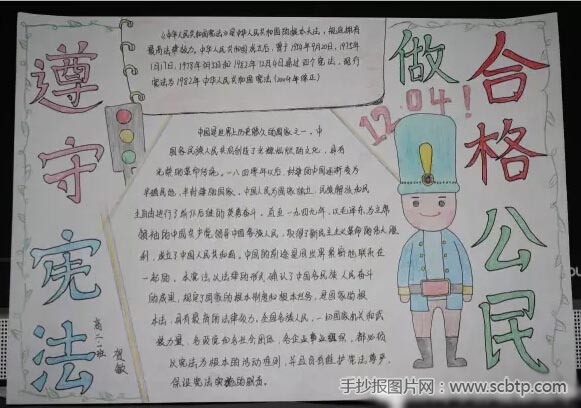 遵守宪法
做合格公民
12.04!
《中华人民共和国宪法》是中华人民共和国的根本大法，规定拥有
最高法律效力。中华人民共和国成立后，曾于1954年9月20日、1975年
1月17日、1978年3月5日和1982年12月4日通过四个宪法，现行
宪法为1982年中华人民共和国宪法（2004年修正）
中国是世界上历史最悠久的国家之一。中
国各族人民共同创造了光辉灿烂的文化，具有
光荣的革命传统。一八四零年以后，封建的中国逐渐变为
半殖民地、半封建的国家。中国人民为国家独立、民族解放和民
主自由进行了前仆后继的英勇奋斗。直至一九四九年，以毛泽东为主席
领袖的中国共产党领导中国各族人民，取得了新民主主义革命的伟大胜
利，成立了中华人民共和国。中国的前途是同世界紧密地联系在
一起的。本宪法以法律的形式确认了中国各族人民奋斗
的成果，规定了国家的根本制度和根本任务，是国家的根
本法，具有最高的法律效力。全国各族人民、一切国家机关和武
装力量、各政党和各社会团体、各企业事业组织，都必须
以宪法为根本的活动准则，并且负有维护宪法尊严、
保证宪法实施的职责。
高二二班
贺敏
手抄报图片网：www.scbtp.com